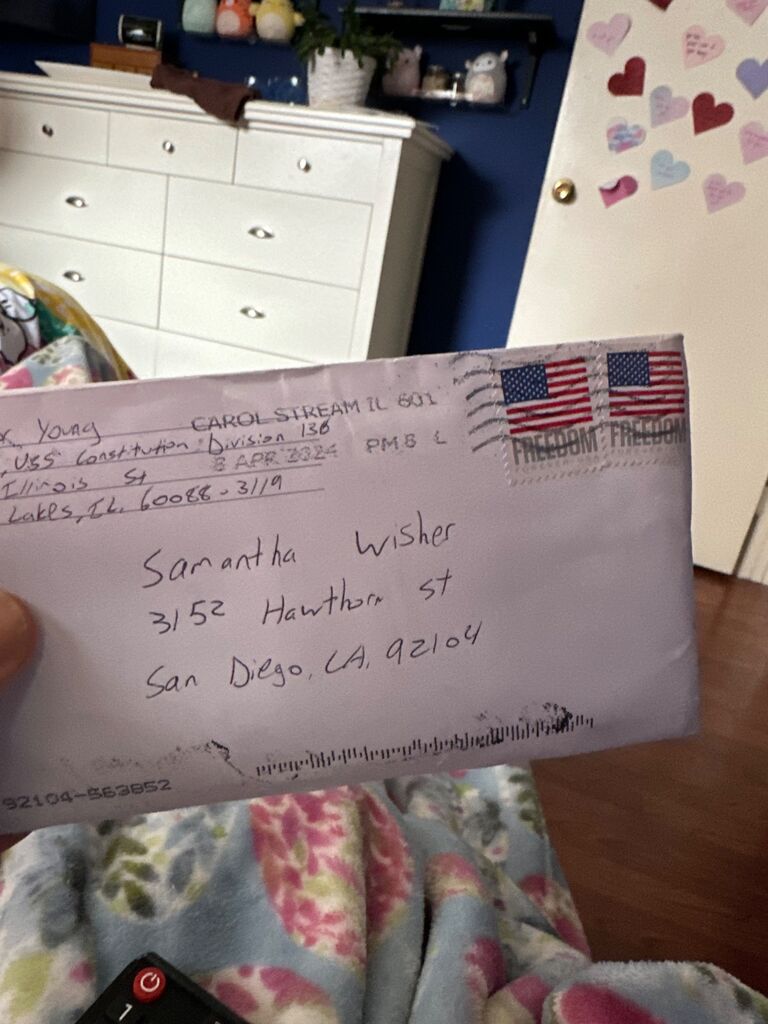 Young
USS Constitution Division 136
Illinois St
Lakes, IL. 60088-3119
CAROL STREAM IL 601
8 APR 2024 PM 8 L
FREEDOM FREEDOM
Samantha Wisher
3152 Hawthorn St
San Diego, CA, 92104
92104-563852
1